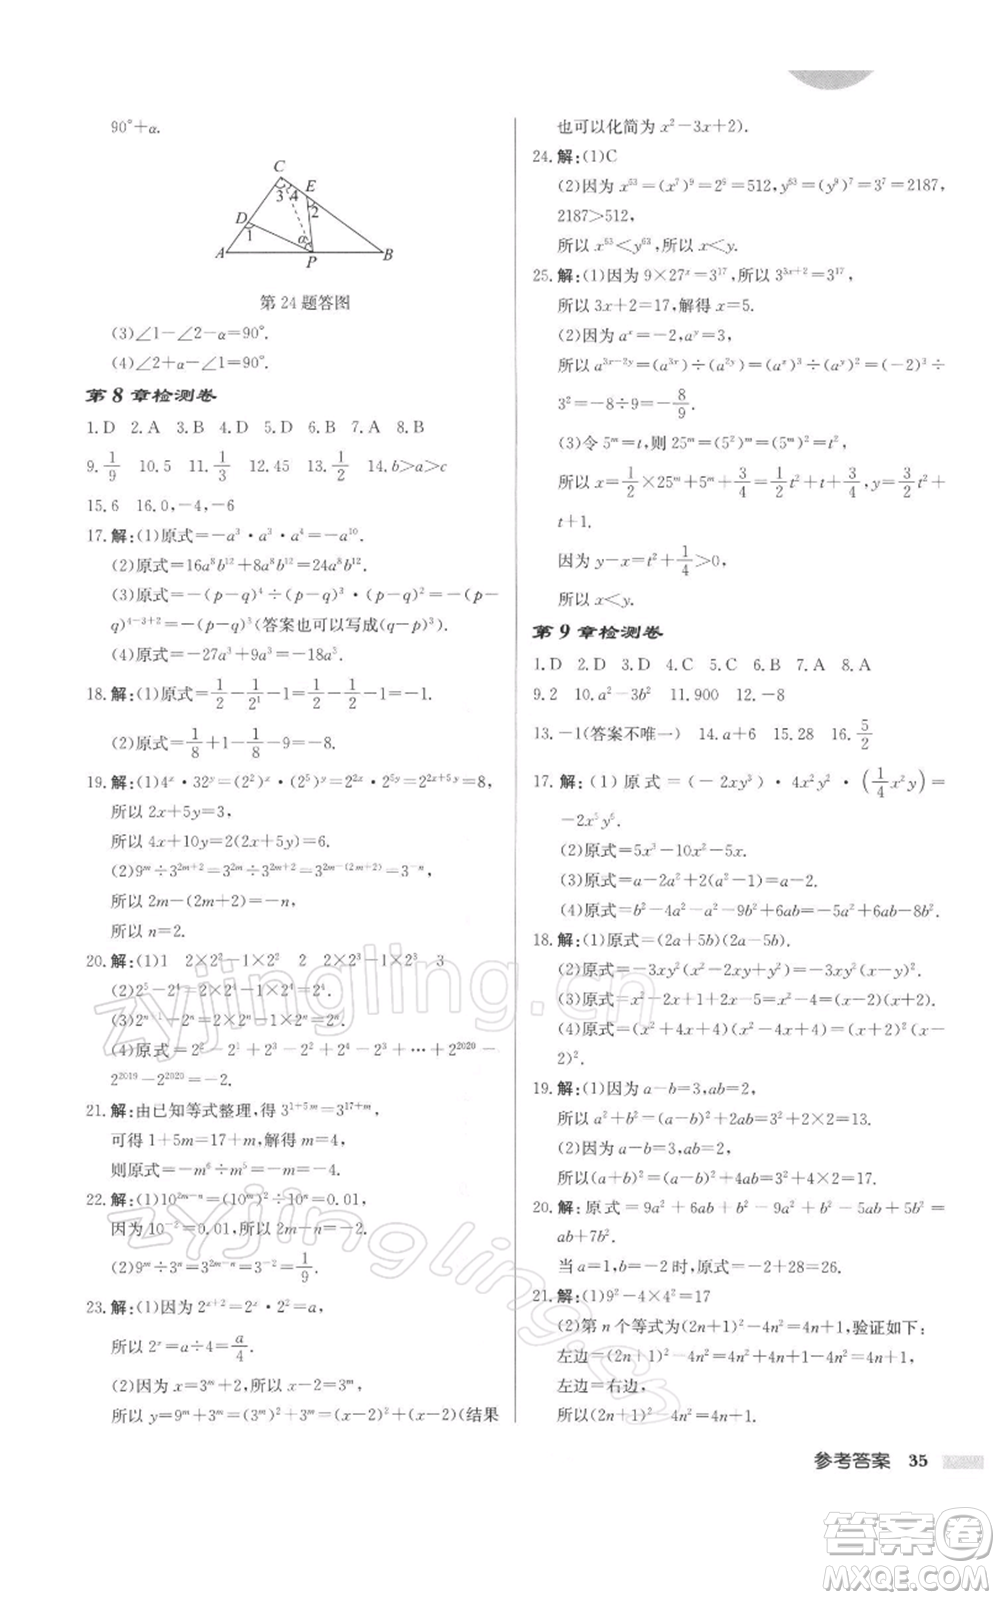 90°+α.
C
E
3 4
2
D
1
α
A
P
B
第24题答图
(3)∠1-∠2-α=90°.
(4)∠2+α-∠1=90°.
第8章检测卷
1.D 2.A 3.B 4.D 5.D 6.B 7.A 8.B
9.1/9 10.5 11.1/3 12.45 13.1/2 14.b>a>c
15.6 16.0,-4,-6
17.解:(1)原式=-a³·a³·a⁴=-a¹⁰.
(2)原式=16a⁸b¹²+8a⁸b¹²=24a⁸b¹².
(3)原式=-(p-q)⁴÷(p-q)³·(p-
q)⁴⁻³⁺²=-(p-q)³(答案也可以写成(q-p)³).
(4)原式=-27a³+9a³=-18a³.
18.解:(1)原式=1/2-1/2¹-1=1/2-1/2-1=-1.
(2)原式=1/8+1-1/8-9=-8.
19.解:(1)4ˣ·32ʸ=(2²)ˣ·(2⁵)ʸ=2²ˣ·2⁵ʸ=2²ˣ⁺⁵ʸ=8,
所以 2x+5y=3,
所以 4x+10y=2(2x+5y)=6.
(2)9ᵐ÷3²ᵐ⁺²=3²ᵐ÷3²ᵐ⁺²=3²ᵐ⁻⁽²ᵐ⁺²⁾=3⁻ⁿ,
所以 2m-(2m+2)=-n,
所以 n=2.
20.解:(1)1 2×2²-1×2² 2 2×2³-1×2³ 3
(2)2⁵-2⁴=2×2⁴-1×2⁴=2⁴.
(3)2ⁿ⁺¹-2ⁿ=2×2ⁿ-1×2ⁿ=2ⁿ.
(4)原式=2²-2¹+2³-2²+2⁴-2³+⋯+2²⁰²⁰-
2²⁰¹⁹-2²⁰²⁰=-2.
21.解:由已知等式整理,得 3¹⁺⁵ᵐ=3¹⁷⁺ᵐ,
可得 1+5m=17+m,解得 m=4,
则原式=-m⁶÷m⁵=-m=-4.
22.解:(1)10²ᵐ⁻ⁿ=(10ᵐ)²÷10ⁿ=0.01,
因为 10⁻²=0.01,所以 2m-n=-2.
(2)9ᵐ÷3ⁿ=3²ᵐ⁻ⁿ=3⁻²=1/9.
23.解:(1)因为 2ˣ⁺²=2ˣ·2²=a,
所以 2ˣ=a÷4=a/4.
(2)因为 x=3ᵐ+2,所以 x-2=3ᵐ,
所以 y=9ᵐ+3ᵐ=(3ᵐ)²+3ᵐ=(x-2)²+(x-2)(结果
也可以化简为 x²-3x+2).
24.解:(1)C
(2)因为 x⁶³=(x⁷)⁹=2⁹=512,y⁶³=(y⁹)⁷=3⁷=2187,
2187>512,
所以 x⁶³<y⁶³,所以 x<y.
25.解:(1)因为 9×27ˣ=3¹⁷,所以 3³ˣ⁺²=3¹⁷,
所以 3x+2=17,解得 x=5.
(2)因为 aˣ=-2,aʸ=3,
所以 a³ˣ⁻²ʸ=(a³ˣ)÷(a²ʸ)=(aˣ)³÷(aʸ)²=(-2)³÷
3²=-8÷9=-8/9.
(3)令 5ᵐ=t,则 25ᵐ=(5²)ᵐ=(5ᵐ)²=t²,
所以 x=1/2×25ᵐ+5ᵐ+3/4=1/2t²+t+3/4,y=3/2t²+
t+1.
因为 y-x=t²+1/4>0,
所以 x<y.
第9章检测卷
1.D 2.D 3.D 4.C 5.C 6.B 7.A 8.A
9.2 10.a²-3b² 11.900 12.-8
13.-1(答案不唯一) 14.a+6 15.28 16.5/2
17.解:(1)原式=(-2xy³)·4x²y²·(1/4x²y)=
-2x⁵y⁶.
(2)原式=5x³-10x²-5x.
(3)原式=a-2a²+2(a²-1)=a-2.
(4)原式=b²-4a²-a²-9b²+6ab=-5a²+6ab-8b².
18.解:(1)原式=(2a+5b)(2a-5b).
(2)原式=-3xy²(x²-2xy+y²)=-3xy²(x-y)².
(3)原式=x²-2x+1+6x-6+9=x²+4x+4=(x+2)².
(4)原式=(x²+4+4x)(x²+4-4x)=(x+2)²(x-
2)².
19.解:(1)因为 a-b=3,ab=2,
所以 a²+b²=(a-b)²+2ab=3²+2×2=13.
(2)因为 a-b=3,ab=2,
所以(a+b)²=(a-b)²+4ab=3²+4×2=17.
20.解:原式=9a²+6ab+b²-9a²+b²+5ab-5b²=
11ab-3b².
当 a=1,b=-2 时,
21.解:(1)9²-4×4²=17
(2)第 n 个等式为(2n+1)²-4n²=4n+1,验证如下:
左边=(2n+1)²-4n²=4n²+4n+1-4n²=4n+1,
左边=右边,
所以(2n+1)²-4n²=4n+1.
参考答案 35
zyjingling.cn
zyjingling.cn
答案圈
MXQE.COM